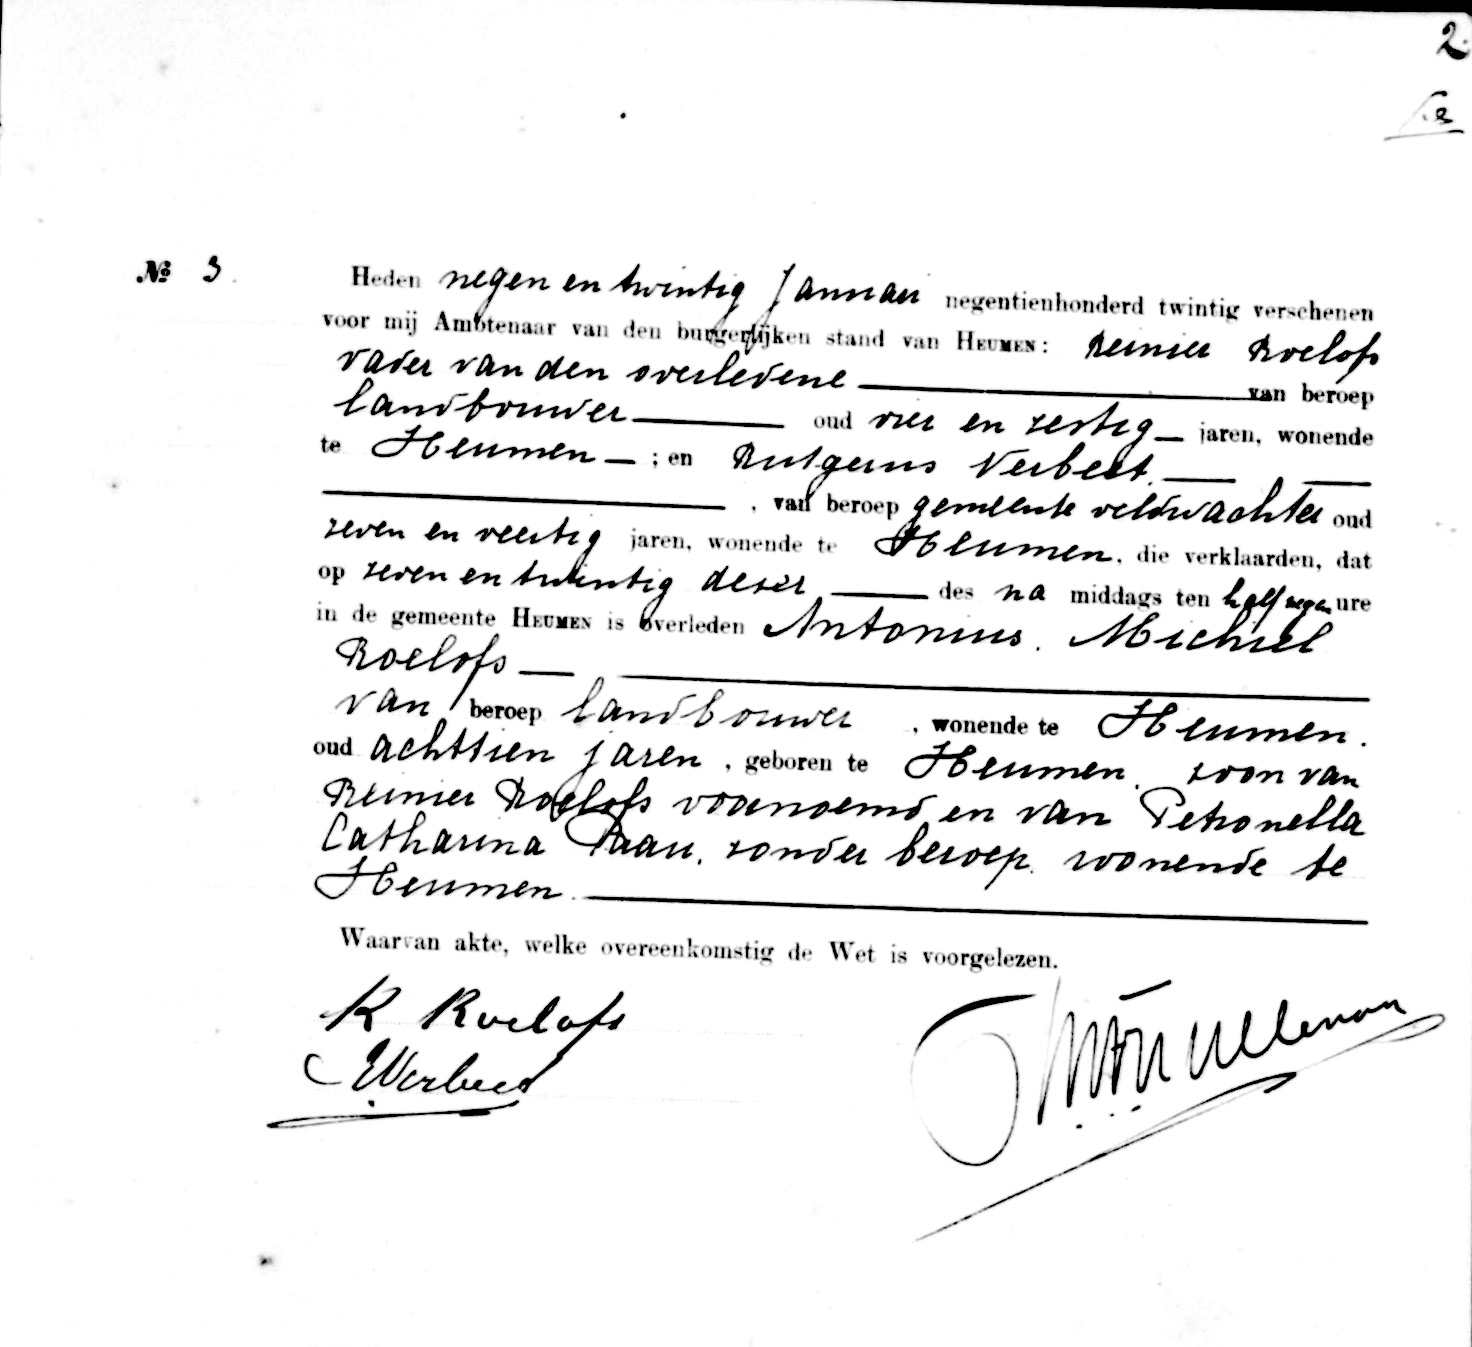 2.
№ 3.
Heden negen en twintig Januari negentienhonderd twintig verschenen
voor mij Ambtenaar van den burgerlijken stand van HEUMEN: Reinier Roelofs
vader van den overledene van beroep
landbouwer oud vier en zestig jaren, wonende
te Heumen ; en Rutgerus Verbeet
, van beroep gemeente veldwachter oud
zeven en veertig jaren, wonende te Heumen, die verklaarden, dat
op zeven en twintig dezer des na middags ten half negen ure
in de gemeente HEUMEN is overleden Antonius Michiel
Roelofs
van beroep landbouwer, wonende te Heumen.
oud achttien jaren, geboren te Heumen, zoon van
Reinier Roelofs voornoemd en van Petronella
Catharina zonder beroep. wonende te
Heumen.
Waarvan akte, welke overeenkomstig de Wet is voorgelezen.
R Roelofs
Verbeet